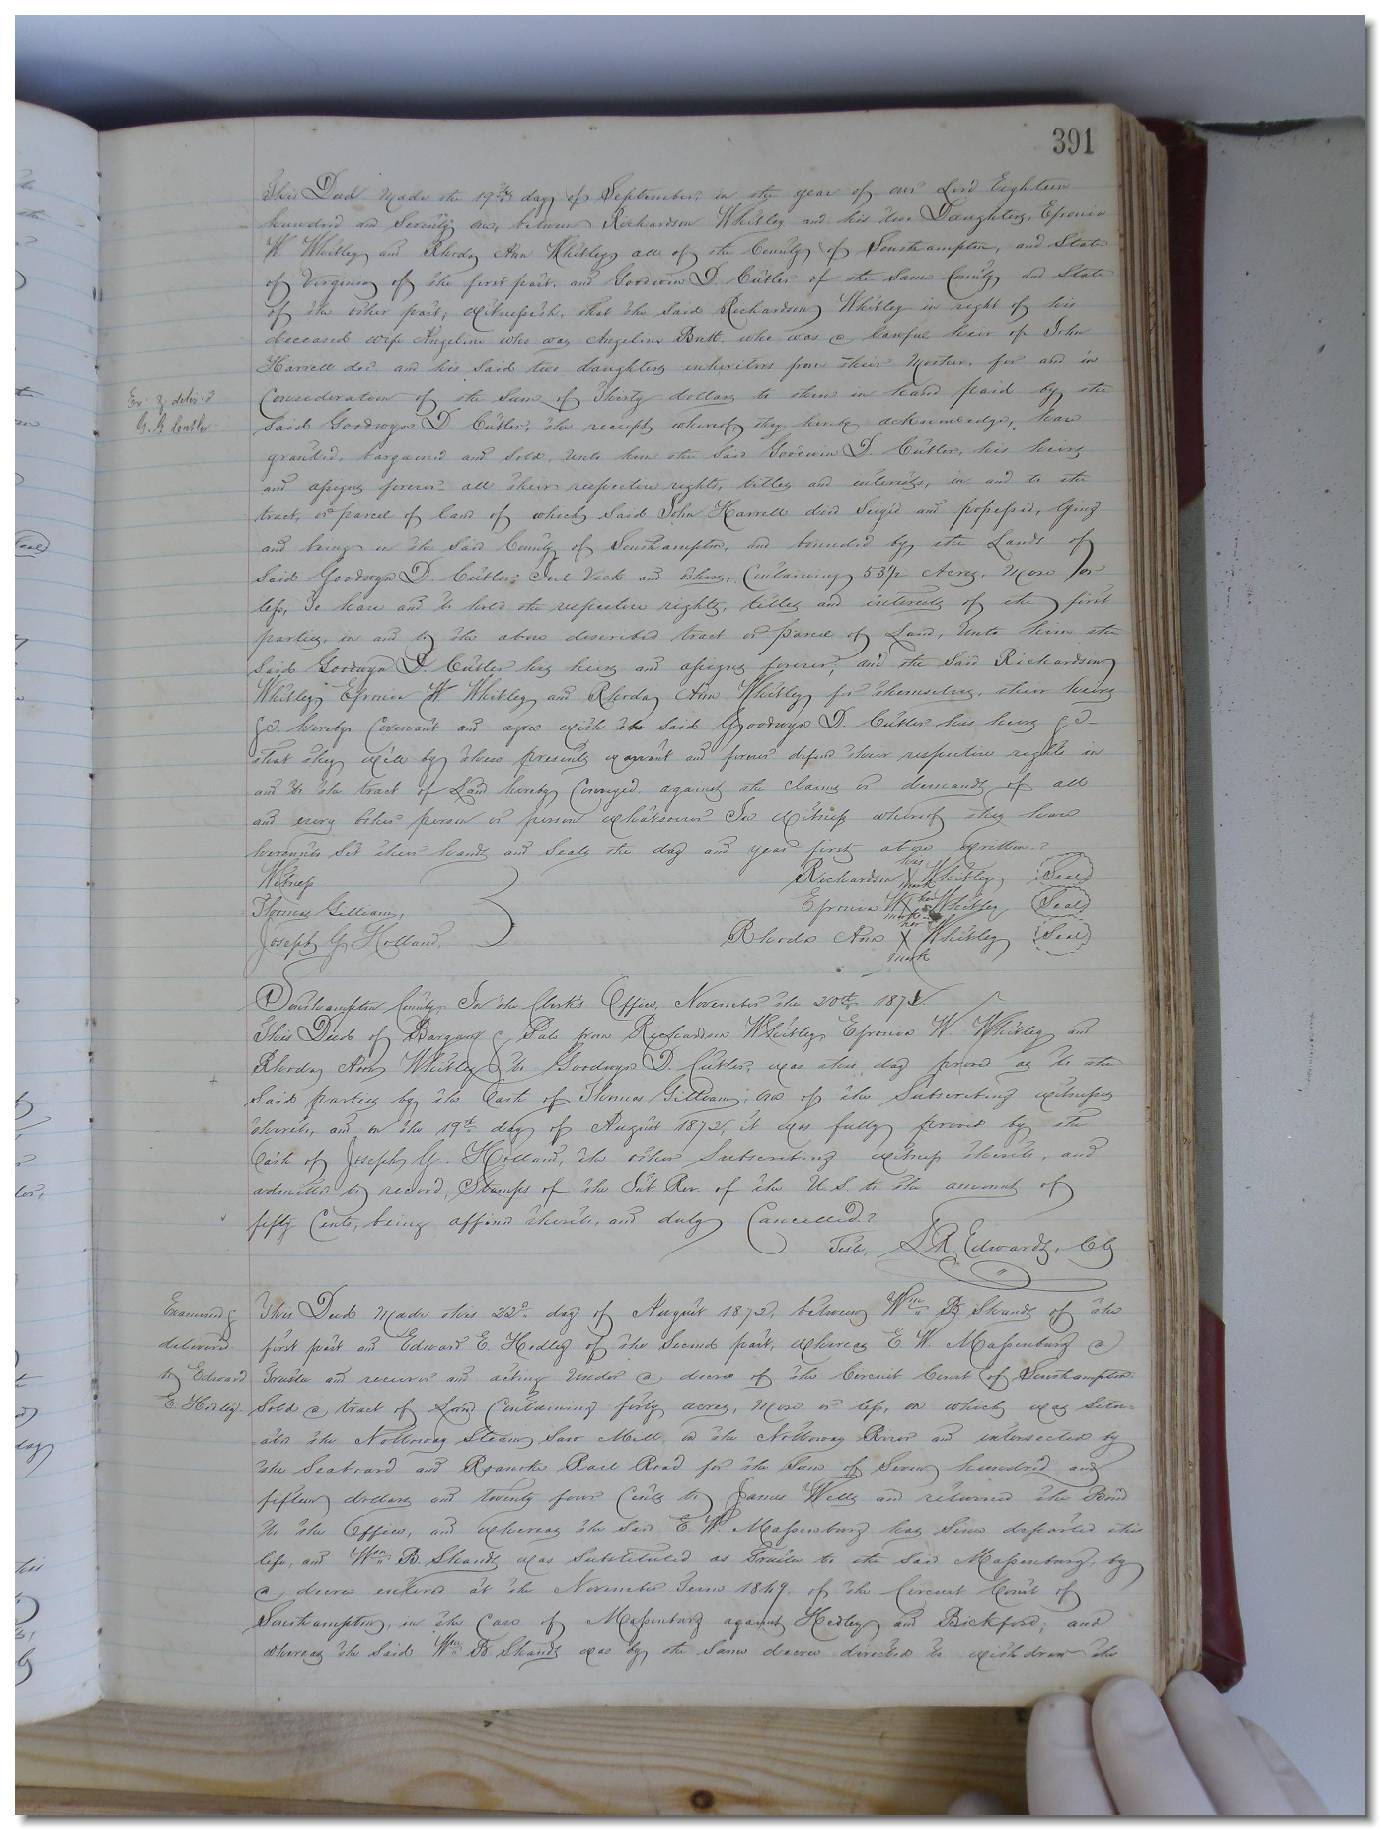 391
This Deed made the 19th day of September in the year of our Lord Eighteen
hundred and Seventy one, between Richardson Whitley and his two Daughters, Efronia
W Whitley and Rhoda Ann Whitley all of the County of Southampton, and State
of Virginia of the first part, and Goodwin D. Cutler of the Same County and State
of the other part; Witnesseth, that the said Richardson Whitley in right of his
deceased wife Angeline who was Angeline Britt who was a lawful heir of John
Harrell dec and his said two daughters inheritors from their Mother, for and in
Ex & deliv'd
Consideration of the Sum of Thirty dollars to them in hand paid by the
G. G Cutler
Said Goodwyn D. Cutler, the receipt whereof they hereby acknowledge, have
granted, bargained and Sold, unto him the Said Goodwin D. Cutler, his heirs
and assigns forever all their respective rights, titles and interests, in and to the
tract, or parcel of land of which Said John Harrell died Seized and possessed, lying
and being in the Said County of Southampton, and bounded by the Lands of
Said Goodwyn D. Cutler, Joel Vick and others, Containing 53½ Acres, More or
less, To have and to hold the respective rights, titles and interests of the first
parties, in and to the above described tract or parcel of Land, Unto him the
Said Goodwyn D. Cutler his heirs and assigns forever, and the Said Richardson
Whitley Efronia W Whitley and Rhoda Ann Whitley for themselves, their heirs
&c hereby Covenant and agree with the said Goodwyn D. Cutler his heirs &c
that they will by these presents warrant and forever defend their respective rights in
and to the tract of Land hereby Conveyed, against the claims or demands of all
and every other person or person whatsoever In Witness whereof they have
hereunto Set their hands and Seals the day and year first above written.
his
Witness Richardson X Whitley Seal
mark
Thomas Gilliam, Efronia W X Whitley Seal
her
mark
her
Joseph G. Holland. Rhoda Ann X Whitley Seal
mark
Southampton County In the Clerk's Office, November the 20th 1871
This Deed of Bargain & Sale from Richardson Whitley, Efronia W. Whitley and
Rhoda Ann Whitley to Goodwyn D. Cutler, was this day proved as to the
Said parties by the Oath of Thomas Gilliam, one of the Subscribing witnesses
thereto, and on the 19th day of August 1872, it was fully proved by the
Oath of Joseph G. Holland, the other Subscribing witness thereto, and
admitted to record, Stamps of the Int Rev. of the U. S. to the amount of
fifty Cents, being affixed thereto, and duly Cancelled.
Teste, L R Edwards, Clk
Examined & This Deed made this 22d day of August 1872, between Wm B Shands of the
delivered first part and Edward E. Hedley of the Second part, whereas E. W. Massenburg a
to Edward Trustee and receiver and acting under a decree of the Circuit Court of Southampton
E Hedley Sold a tract of Land Containing forty acres, more or less, on which was Situ-
ated the Nottoway Steam Saw Mill, on the Nottoway River and intersected by
the Seaboard and Roanoke Rail Road for the Sum of Seven hundred and
fifteen dollars and twenty four Cents to James Wells and returned the Bond
to the Office, and whereas the Said E. W. Massenburg has Since departed this
life, and Wm B. Shands was Substituted as Trustee to the Said Massenburg, by
a decree entered at the November Term 1869 of the Circuit Court of
Southampton, in the Case of Massenburg against Hedley and Bickford; and
whereas the Said Wm B Shands was by the Same decree directed to withdraw the